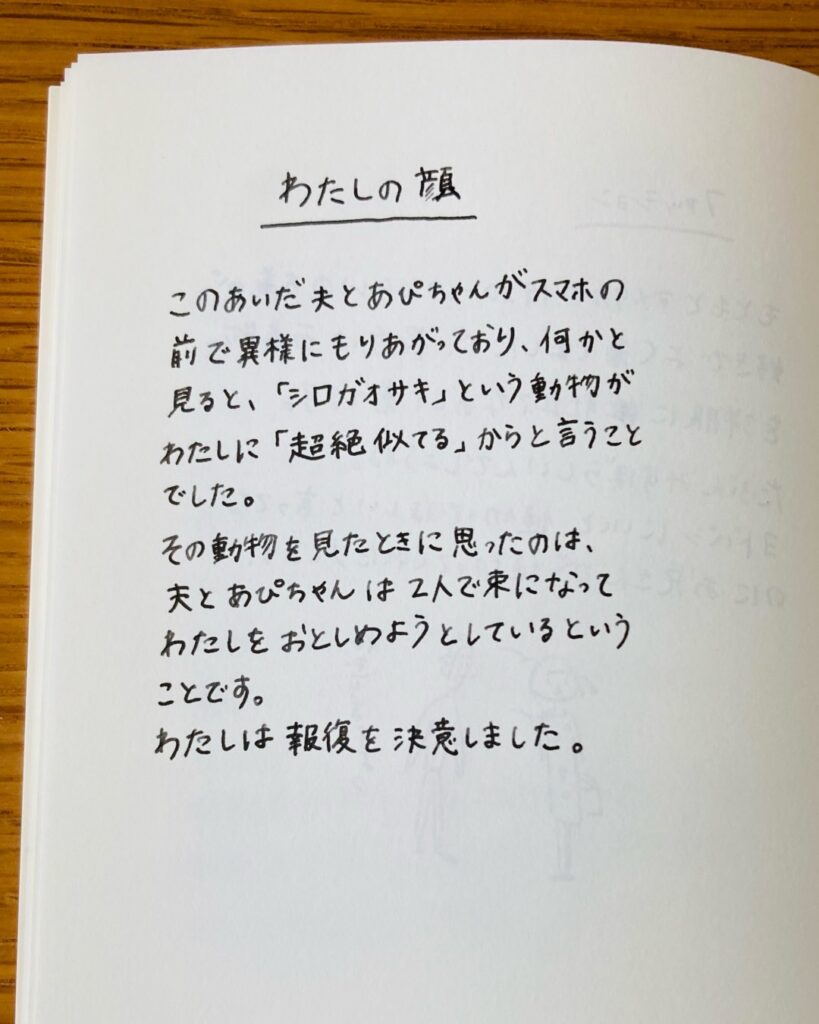 わたしの顔
このあいだ夫とあぴちゃんがスマホの
前で異様にもりあがっており、何かと
見ると、「シロガオサキ」という動物が
わたしに「超絶似てる」からと言うこと
でした。
その動物を見たときに思ったのは、
夫とあぴちゃんは2人で束になって
わたしをおとしめようとしているという
ことです。
わたしは報復を決意しました。